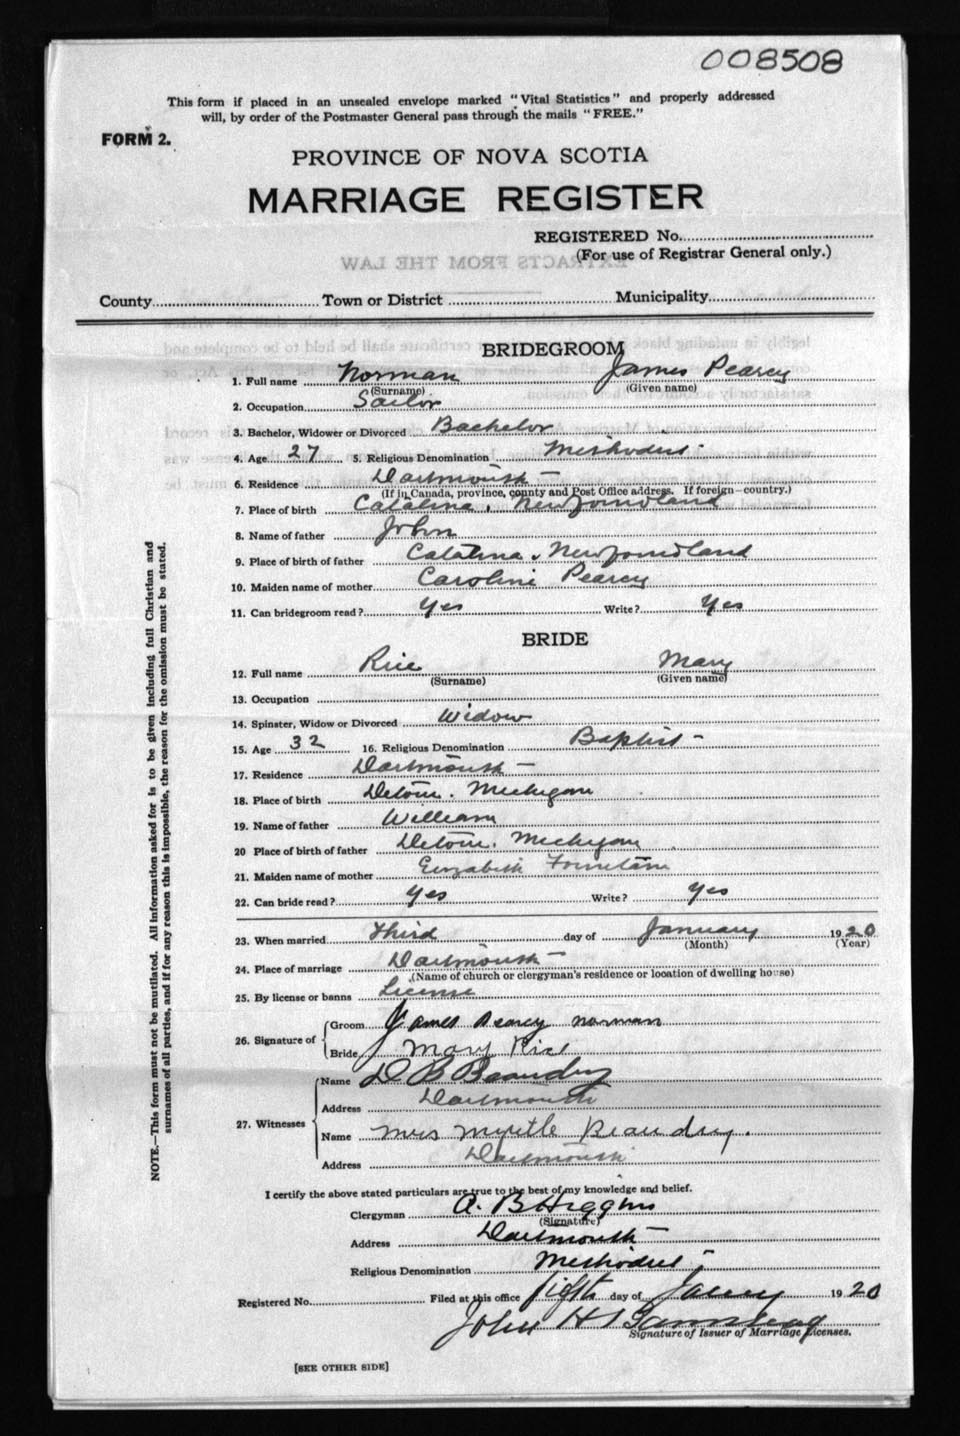 008508
This form if placed in an unsealed envelope marked "Vital Statistics" and properly addressed
will, by order of the Postmaster General pass through the mails "FREE."
FORM 2.
PROVINCE OF NOVA SCOTIA
MARRIAGE REGISTER
REGISTERED No.
(For use of Registrar General only.)
EXTRACTS FROM THE LAW
County Town or District Municipality
BRIDEGROOM
1. Full name Norman James Pearcy
(Surname) (Given name)
2. Occupation Sailor
3. Bachelor, Widower or Divorced Bachelor
4. Age 27 5. Religious Denomination Methodist
6. Residence Dartmouth
(If in Canada, province, county and Post Office address. If foreign—country.)
7. Place of birth Catalina, Newfoundland
8. Name of father John
9. Place of birth of father Catalina, Newfoundland
10. Maiden name of mother Caroline Pearcy
11. Can bridegroom read? Yes Write? Yes
BRIDE
12. Full name Rice Mary
(Surname) (Given name)
13. Occupation
14. Spinster, Widow or Divorced Widow
15. Age 32 16. Religious Denomination Baptist
17. Residence Dartmouth
18. Place of birth Michigan
19. Name of father William
20 Place of birth of father Michigan
21. Maiden name of mother Elizabeth Fountain
22. Can bride read? Yes Write? Yes
23. When married Third day of January 1920
(Month) (Year)
24. Place of marriage Dartmouth
(Name of church or clergyman's residence or location of dwelling house)
25. By license or banns License
26. Signature of Groom James Pearcy Norman
Bride Mary Rice
27. Witnesses Name D B Beaudry
Address Dartmouth
Name Mrs Myrtle Beaudry.
Address Dartmouth
I certify the above stated particulars are true to the best of my knowledge and belief.
Clergyman A. B Higgins
(Signature)
Address Dartmouth
Religious Denomination Methodist
Registered No. Filed at this office fifth day of 1920
John H
Signature of Issuer of Marriage Licenses.
[SEE OTHER SIDE]
NOTE.—This form must not be mutilated. All information asked for is to be given including full Christian and
surnames of all parties, and if for any reason this is impossible, the reason for the omission must be stated.